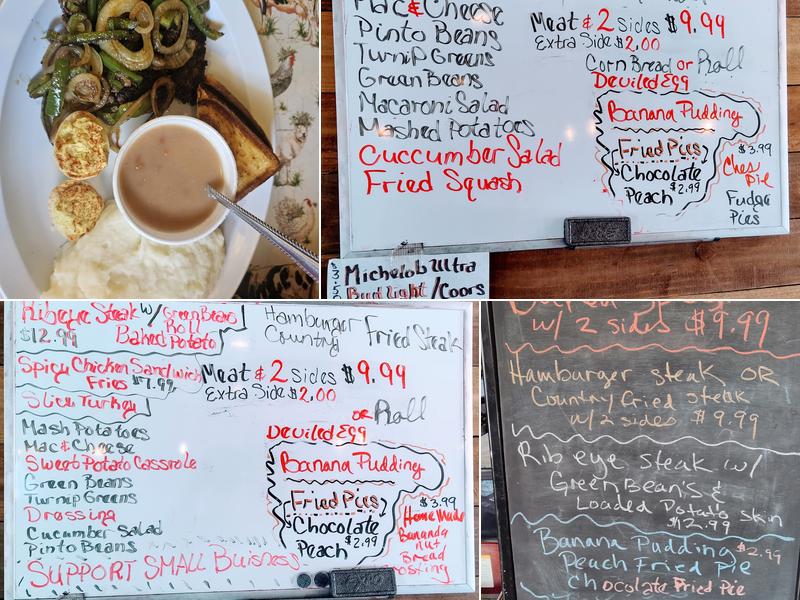 Mac & Cheese
Pinto Beans
Turnip Greens
Green Beans
Macaroni Salad
Mashed Potatoes
Cuccumber Salad
Fried Squash
Meat & 2 sides $9.99
Extra Side $2.00
Corn Bread or Roll
Deviled Egg
Banana Pudding
Fried Pies
Chocolate
Peach $2.99
$3.99
Ches
Pie
Fudge
Pies
Michelob Ultra
Bud Light/Coors
Ribeye Steak w/ Green Beans
Roll
$12.99 Baked Potato
Spicy Chicken Sandwich
Fries $7.99
Slice Turkey
Mash Potatoes
Mac & Cheese
Sweet Potato Casserole
Green Beans
Turnip Greens
Dressing
Cucumber Salad
Pinto Beans
SUPPORT SMALL Buisness
Hamburger
Country Fried Steak
Meat & 2 sides $9.99
Extra Side $2.00
or Roll
Deviled Egg
Banana Pudding
Fried Pies
Chocolate
Peach $2.99
$3.99
Home Made
Bananda
nut
Bread
w/ 2 sides $9.99
Hamburger steak OR
Country Fried steak
w/ 2 sides $9.99
Rib eye steak w/
Green Bean's &
Loaded Potato Skin
$12.99
Banana Pudding $2.99
Peach Fried Pie
Chocolate Fried Pie